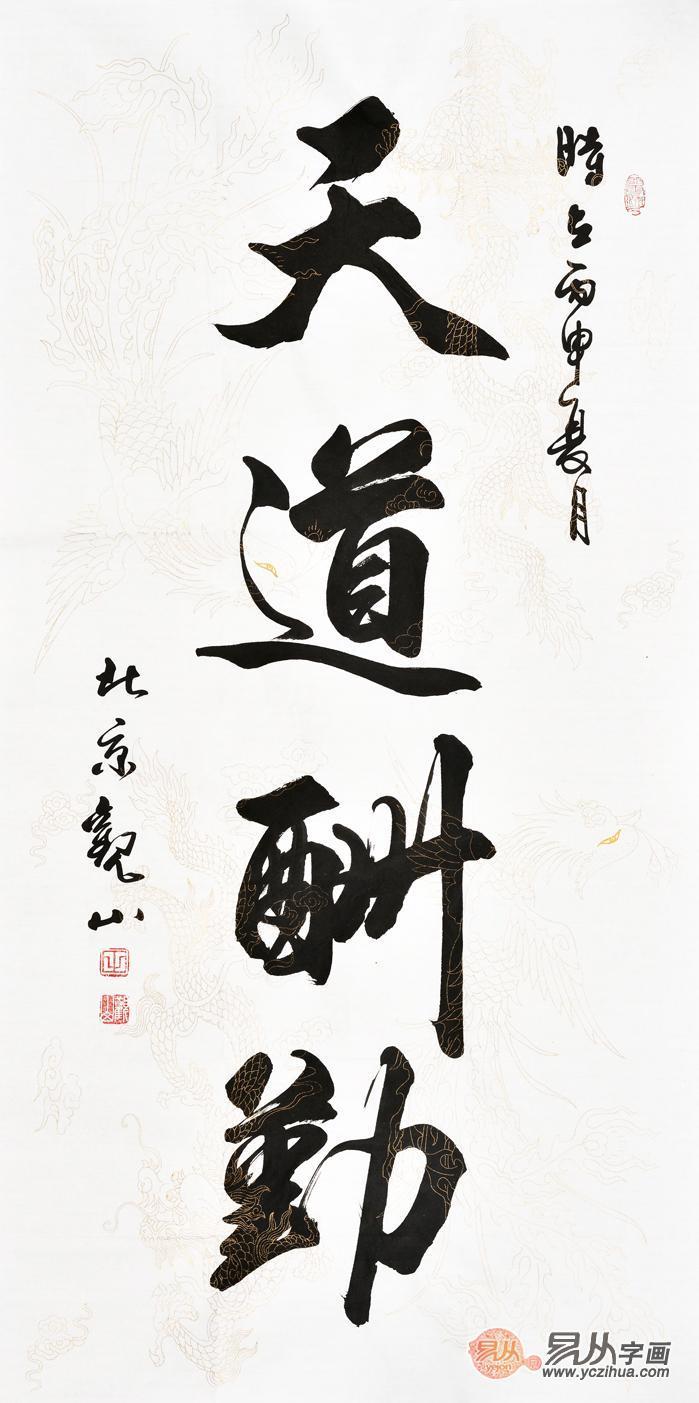 時在丙申夏月
天道酬勤
北京觀山
易从字画
yojon
www.yczihua.com